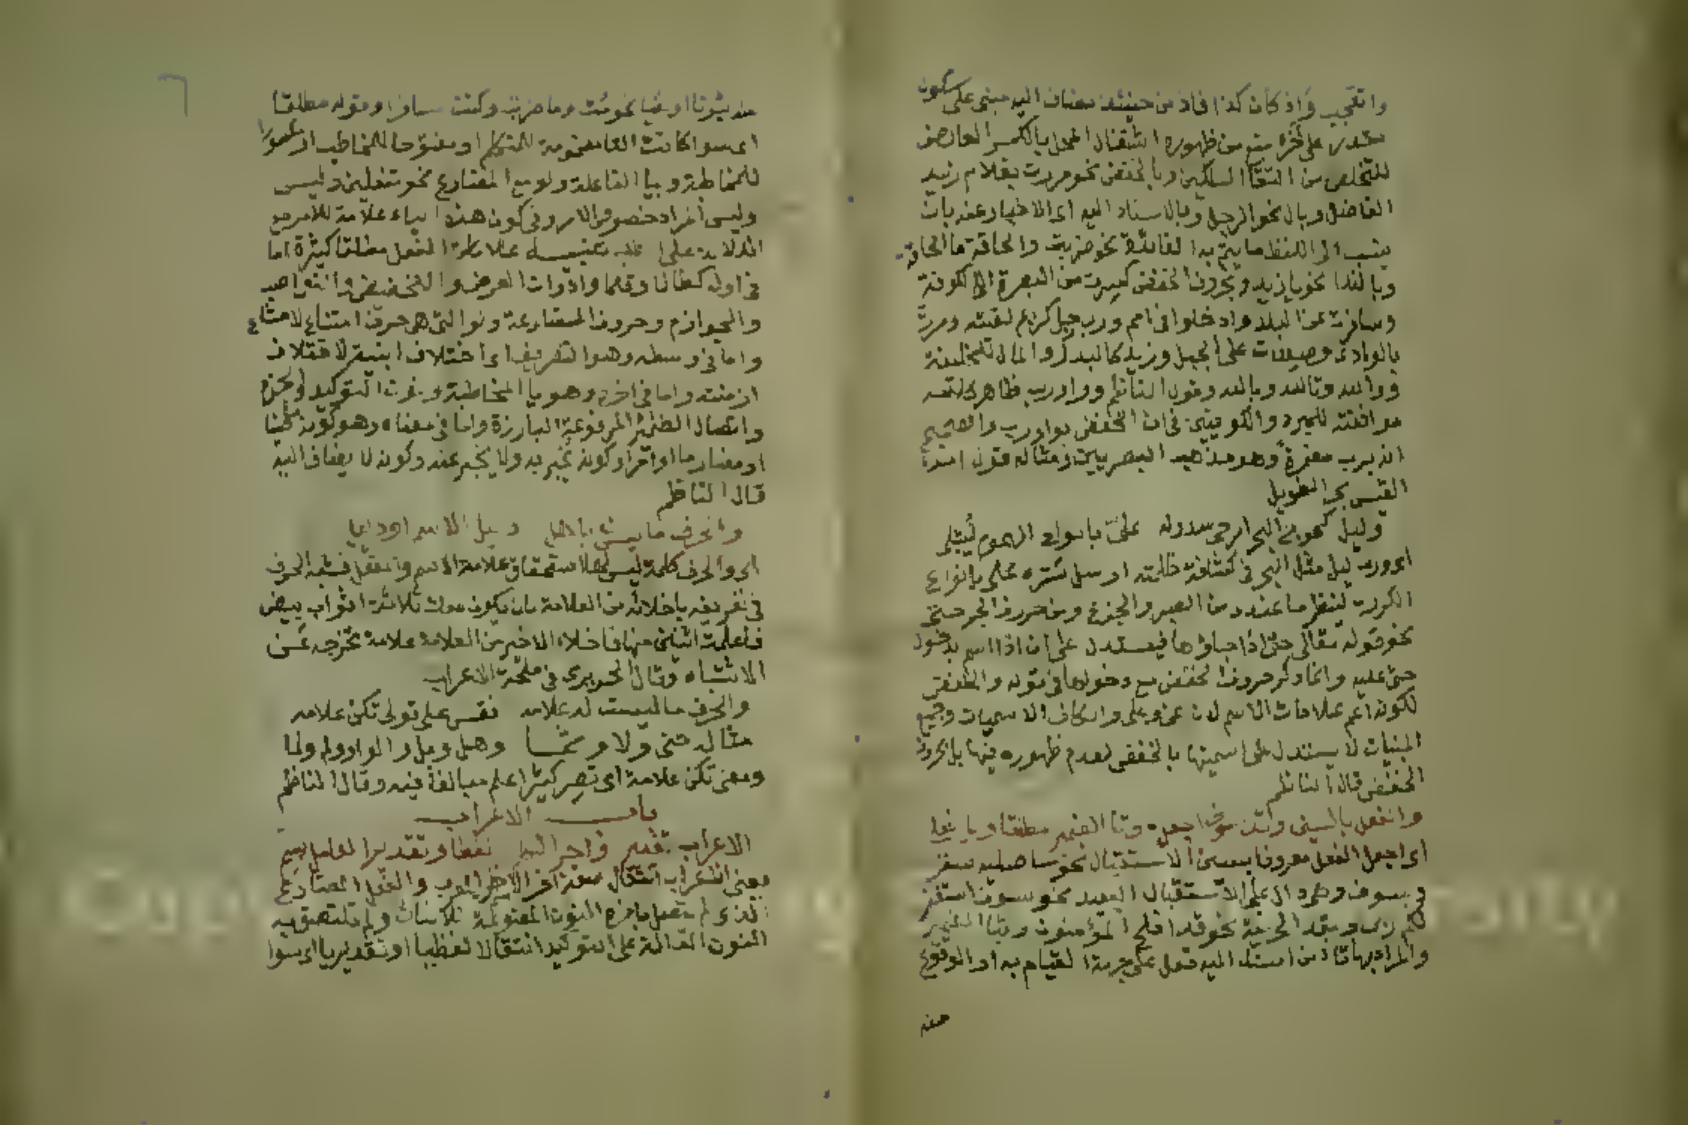 واتعجب واذ كان كذا فاذ من حينئذ مضاف اليه مبنى على سكون
مقدر على آخره منع من ظهوره اشتغال المحل بالكسر العارض
للتخلص من التقا الساكنين وبالخفض نحو مررت بغلام زيد
الفاضل وبال نحو الرجل وبالاسناد اليه اى الاخبار عنه بان
ينسب الى اللفظ ما يتم به الفائدة نحو ضربت والحاقة ما الحاقة
وبالندا نحو يا زيد وبحروف الخفض كسرت من البصرة الى الكوفة
وسافرت عن البلد وادخلوا فى امم ورب رجل كريم لقيته ومررت
بالوادى وصعدت على الجبل وزيد كالبدر والمال للخليفة
ووالله وتالله وبالله وقول الناظم وواو رب ظاهره
موافقته للمبرد والكوفيين فى ان الخفض بواو رب والصحيح
انه برب مضمرة وهو مذهب البصريين ومثاله قول امرئ
القيس بحر الطويل
وليل كموج البحر ارخى سدوله على بانواع الهموم ليبتلى
اى ورب ليل مثل البحر فى كثافة ظلمته ارسل ستره على بانواع
الكرب لينظر ما عندى من الصبر والجزع ومن حروف الجر حتى
نحو قوله تعالى حتى اذا جاؤها فيستدل على ان اذا اسم بدخول
حتى عليه وانما ذكر حروف الخفض مع دخولها فى قوله والخفض
لكونه اعم علامات الاسم لان عن وعلى والكاف الاسميات وجميع
المبنيات لا يستدل على اسميتها بالخفض لعدم ظهوره فيها بل بحروف
الخفض قال الناظم
والفعل بالسين وقد سوف اجعله وتا الضمير مطلقا وبا
اى اجعل الفعل معروفا بسين الاستقبال نحو سأصليه سقر
وبسوف وهى دالة على الاستقبال البعيد نحو سوف استغفر
لكم ربى وبقد الحرفية نحو قد افلح المؤمنون وبتا الضمير
والمراد بها تا من اسند اليه فعل على جهة القيام به او الوقوع
منه
اى سوا كانت التا مضمومة للمتكلم او مفتوحا للمخاطب او مكسورا
للمخاطبة وبيا الفاعلة ولو مع المضارع نحو تفعلين وليس
وليس المراد خصوص الامر وفى كون هذه الياء علامة للامر مع
الدلالة على الطلب تنبيه علامات الفعل مطلقا كثيرة اما
فى اوله كطالما وقلما وادوات العرض والتحضيض والنواصب
والجوازم وحروف المضارعة ولو التى هى حرف امتناع لامتناع
واما فى وسطه وهو التصريف اى اختلاف ابنيته لاختلاف
ازمنته واما فى اخره وهو يا المخاطبة ونون التوكيد والجزم
واتصال الضمائر المرفوعة البارزة واما فى معناه وهو كونه ماضيا
او مضارعا او امرا وكونه يخبر به ولا يخبر عنه وكونه لا يضاف اليه
قال الناظم
اى والحرف كلمة ليس لها استحقاق علامة الاسم والفعل فشبه الحرف
فى تعريفه باخلائه من العلامة بان يكون معك ثلاثة اثواب بيض
فاعلمت اثنين منها فاخلاء الاخير من العلامة علامة تخرجه عن
الاشتباه وقال الحريرى فى ملحة الاعراب
والحرف ما ليست له علامه فقس على قولى تكن علامه
مثاله حتى ولا وثما وهل وبل ولو ولم ولما
ومعنى تكن علامة اى تصر كثير العلم مبالغة فيه وقال الناظم
باب الاعراب
الاعراب تغيير اواخر الكلم لفظا وتقديرا لعامل
يعنى الاعراب انتقال صفة اخر الاسم المعرب والفعل المضارع
الذى لم يتصل باخره النون الموضوعة للاناث ولم تلتصق به
النون الدالة على التوكيد انتقالا لفظيا او تقديريا اى سوا